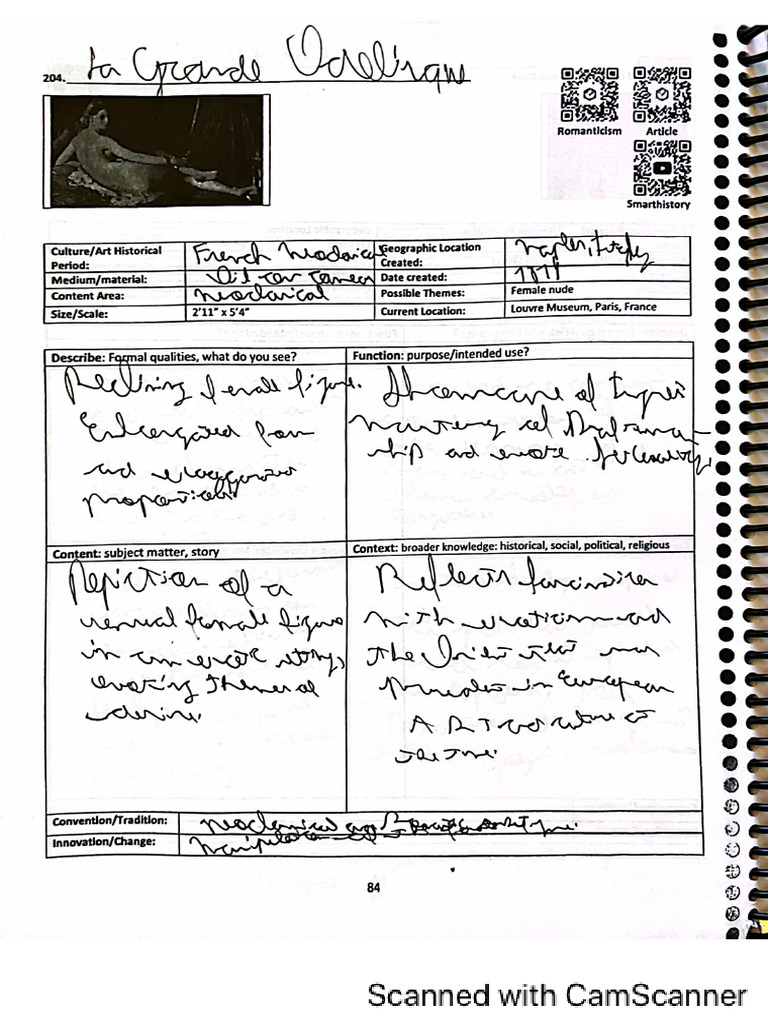 204. La Grande Odalisque
Romanticism Article
Smarthistory
Culture/Art Historical Period: French Neoclassical
Geographic Location Created:
Medium/material: Oil on canvas
Date created:
Content Area: Neoclassical
Possible Themes: Female nude
Size/Scale: 2'11" x 5'4"
Current Location: Louvre Museum, Paris, France
Describe: Formal qualities, what do you see?
Reclining female figure.
Elongated form
and exaggerated
proportions
Function: purpose/intended use?
Showcase of Ingres
mastery of Draftsman-
ship and evoke
Content: subject matter, story
Depiction of a
sensual female figure
in an exotic setting,
evoking themes of
desire.
Context: broader knowledge: historical, social, political, religious
Reflects fascination
with exoticism and
the Orient that was
prevalent in European
ART and culture at
the time.
Convention/Tradition: Neoclassical
Innovation/Change: Manipulation of
84
Scanned with CamScanner